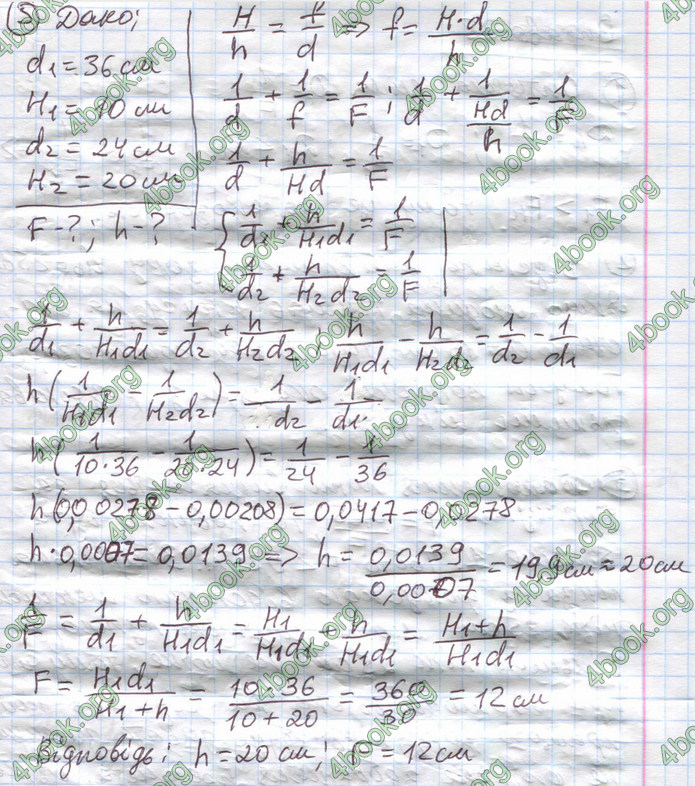 ③ Дано:
d₁ = 36 см
H₁ = 10 см
d₂ = 24 см
H₂ = 20 см
F - ?; h - ?
H/h = f/d => f = H·d/h
1/d + 1/f = 1/F ; 1/d + 1/(Hd/h) = 1/F
1/d + h/Hd = 1/F
{ 1/d₁ + h/H₁d₁ = 1/F
1/d₂ + h/H₂d₂ = 1/F
1/d₁ + h/H₁d₁ = 1/d₂ + h/H₂d₂ ; h/H₁d₁ - h/H₂d₂ = 1/d₂ - 1/d₁
h(1/H₁d₁ - 1/H₂d₂) = 1/d₂ - 1/d₁
h(1/10·36 - 1/20·24) = 1/24 - 1/36
h(0,00278 - 0,00208) = 0,0417 - 0,0278
h·0,0007 = 0,0139 => h = 0,0139/0,0007 = 19,9 см ≈ 20 см
1/F = 1/d₁ + h/H₁d₁ = H₁/H₁d₁ + h/H₁d₁ = H₁+h/H₁d₁
F = H₁d₁/H₁+h = 10·36/10+20 = 360/30 = 12 см
Відповідь: h = 20 см; F = 12 см
4book.org